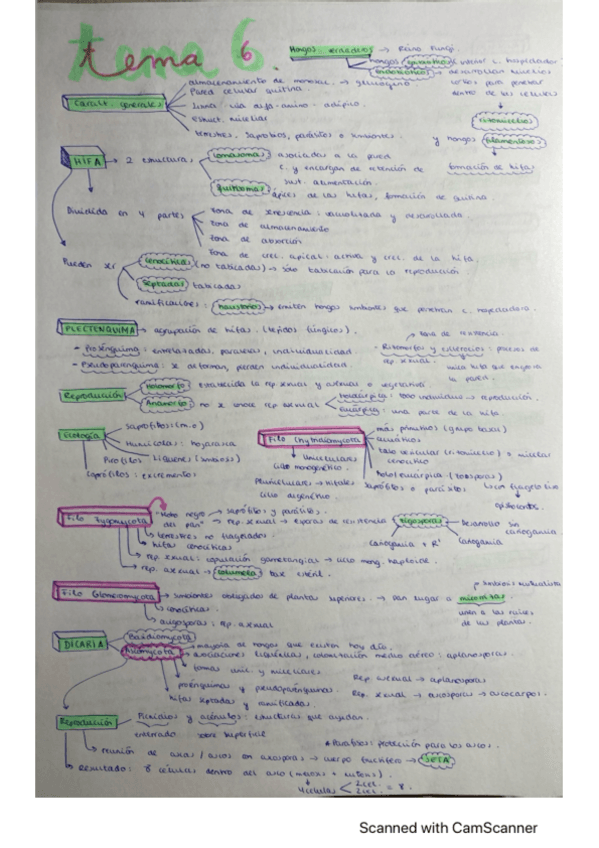 tema 6
Hongos verdaderos → Reino Fungi.
hongos
endobióticos → desarrollan
dentro de las células
rizomicelios
y hongos filamentosos
formación de hifas
Caract. generales
almacenamiento de → glucógeno
Pared celular quitina
Lisina: vía alfa-amino-adípico.
Estruct. miceliar
terrestres, saprobios, parásitos o simbiontes.
HIFA → 2 estructuras
Lomasoma asociadas a la pared
c. y encargan de retención de
sust. alimentación.
Quitosoma ápices de las hifas, formación de quitina
Dividida en 4 partes
zona de senescencia: vacuolizada y
zona de almacenamiento
zona de absorción
zona de crec. apical: activa y crec. de la hifa.
Pueden ser
cenocíticas (no tabicadas) → sólo tabicación para la reproducción.
septadas tabicadas
ramificaciones: haustorios → emiten hongos simbiontes que penetran c. hospedadora.
PLECTENQUIMA → agrupación de hifas. (tejidos fúngicos).
- Prosénquima: entrelazadas, paralelas, individualidad.
- Pseudoparénquima: se deforman, pierden individualidad.
zona de resistencia.
- Rizomorfos y esclerocios: proceso de
rep sexual.
Reproducción
Holomorfo establecida la rep sexual y asexual o vegetativa
Anamorfo no se conoce rep sexual
holocárpica: todo individuo → reproducción.
eucárpica: una parte de la hifa.
Ecología
saprófitos (m.o)
Humícolas: hojarasca
Pirófilos Líquenes (simbiosis)
Coprófilos: excrementos
Filo Chytridiomycota
más primitivos (grupo basal)
acuáticos
talo vesicular (rizomicelio) o micelar
cenocítico
holo/eucárpica (zoosporas)
saprófitos o parásitos
opistoconto.
Unicelulares
ciclo monogenético
Pluricelulares → hifales
ciclo digenético
Filo Zygomycota
"Moho negro → saprófitos y parásitos.
del pan" → rep. sexual → esporas de resistencia zigosporas
Desarrollo sin
cariogamia
cariogamia + R!
cariogamia
terrestres no flagelados
hifas cenocíticas
rep. sexual: copulación gametangios → ciclo mong. haploide.
rep. asexual → columela base estéril.
Filo Glomeromycota
simbiontes obligados de plantas superiores → dan lugar a micorrizas
simbiosis mutualista
unen a las raíces
de las plantas.
cenocíticas.
rep. asexual
DICARIA
Basidiomycota
Ascomycota
mayoría de hongos que existen hoy día.
asociaciones liquénicas, colonización medio aéreo: aplanosporas.
formas unic. y miceliares
prosénquimas y pseudoparénquimas.
hifas septadas y ramificadas.
Rep asexual → aplanosporas
Rep. sexual → ascosporas → ascocarpos.
Reproducción
Picnidios y acérvulos: estructuras que ayudan.
enterrado sobre superficie
* Paráfisis: protección para los ascos.
reunión de ascas / ascos con ascospora → cuerpo fructífero → SETA
Resultado: 8 células dentro del asco (meiosis + mitosis).
4 células 2 cel. 2 cel. = 8.
Scanned with CamScanner